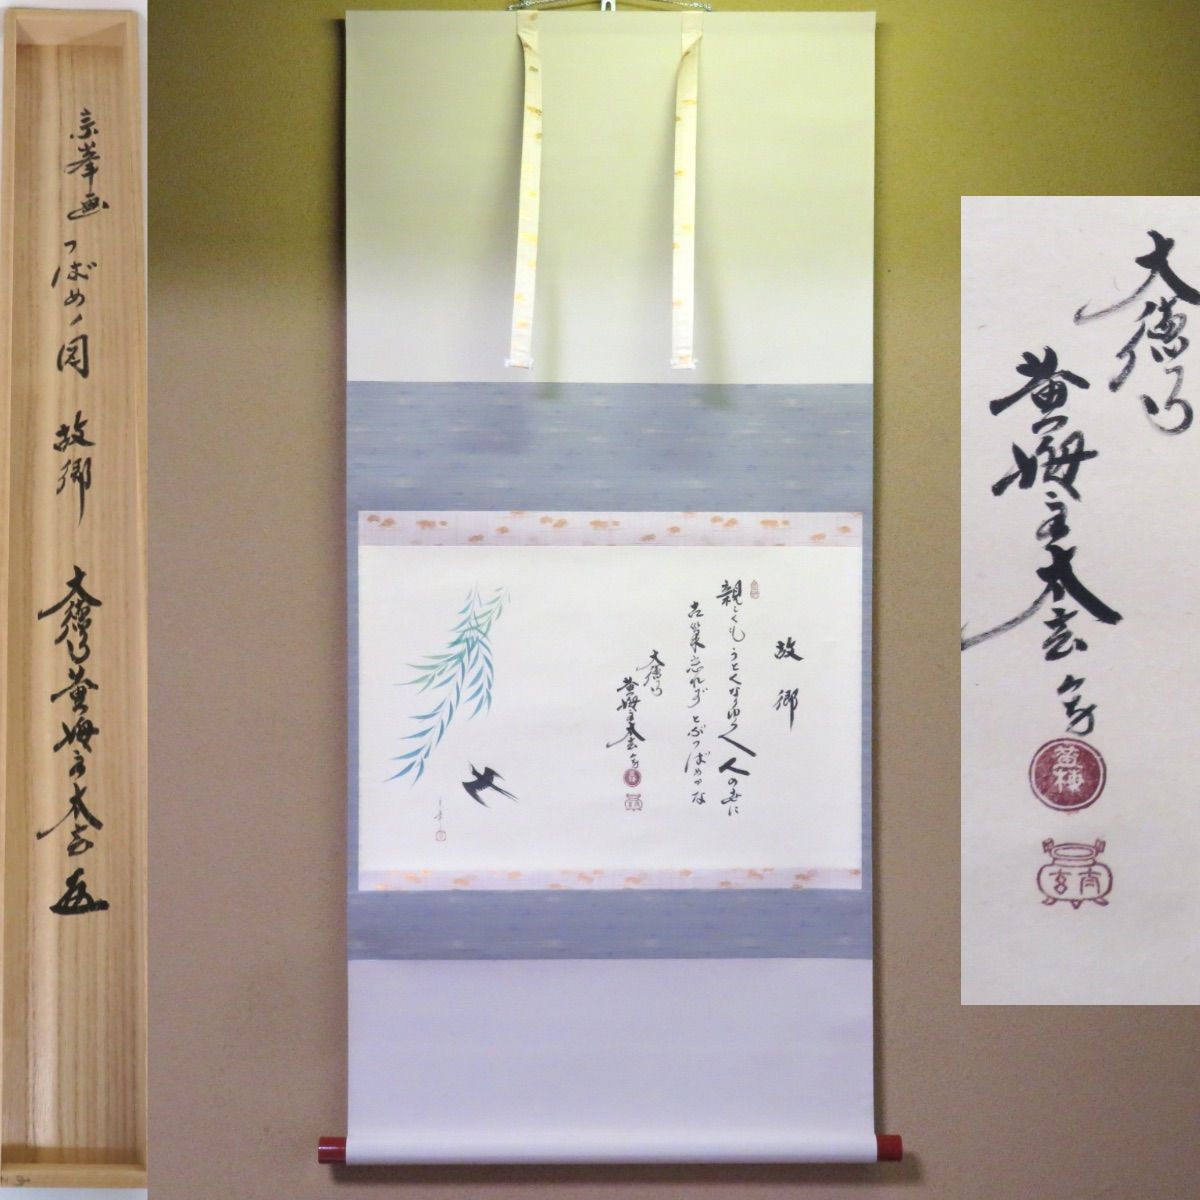 宗峯画 つばめノ図 故郷
大徳寺黄梅主太玄
故郷
親しくも うとくなりゆく人の世に
古巣忘れず とぶつばめかな
大徳寺
黄梅主太玄
大徳寺
黄梅主太玄
黄梅
太玄